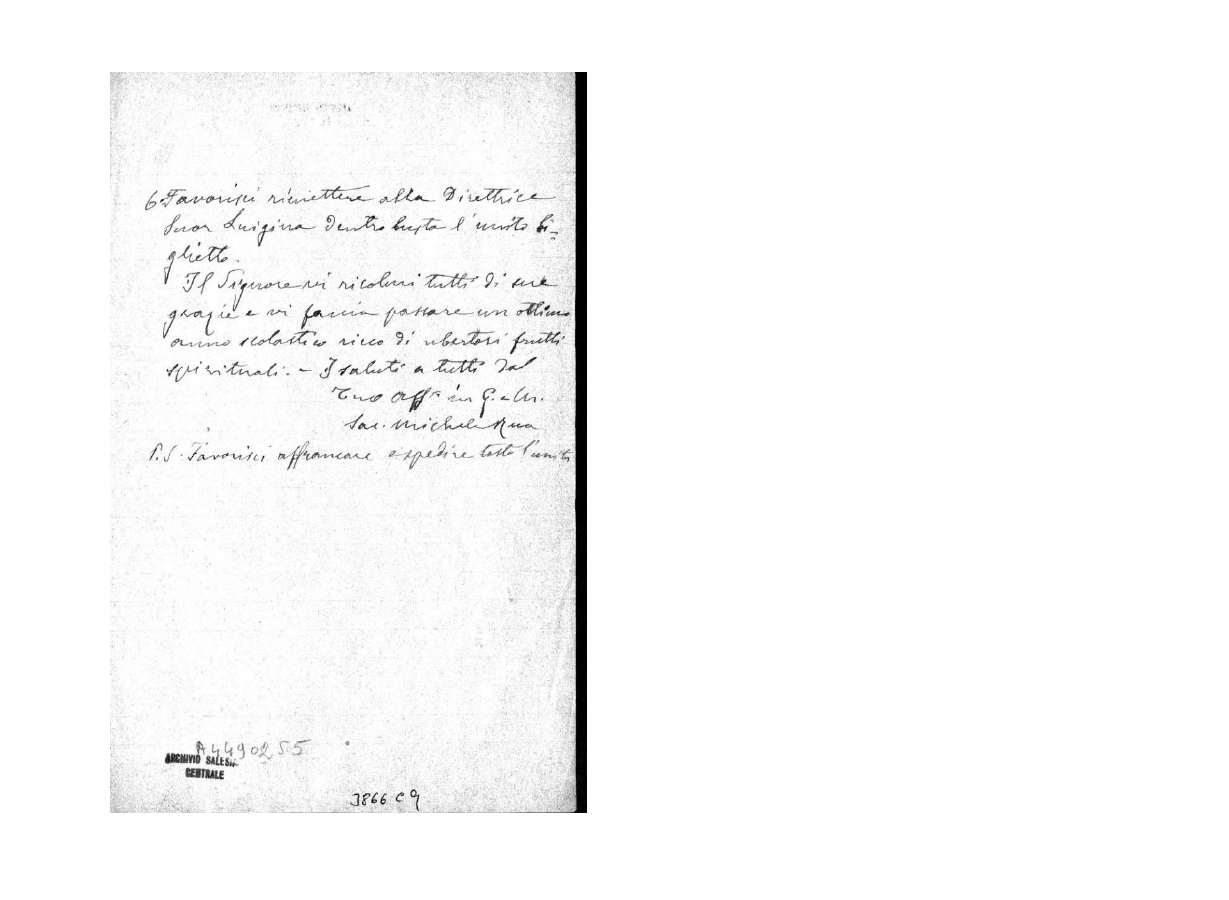 6° Favorisci rimettere alla Direttrice
Suor Luigina dentro busta l'unito bi=
glietto.
Il Signore vi ricolmi tutti di sue
grazie e vi faccia passare un ottimo
anno scolastico ricco di ubertosi frutti
spirituali. – I saluti a tutti dal
Tuo aff.mo in G. e M.
Sac. Michele Rua
P.S. Favorisci affrancare e spedire tosto l'unito
A4490255
ARCHIVIO SALES..
CENTRALE
3866 C9